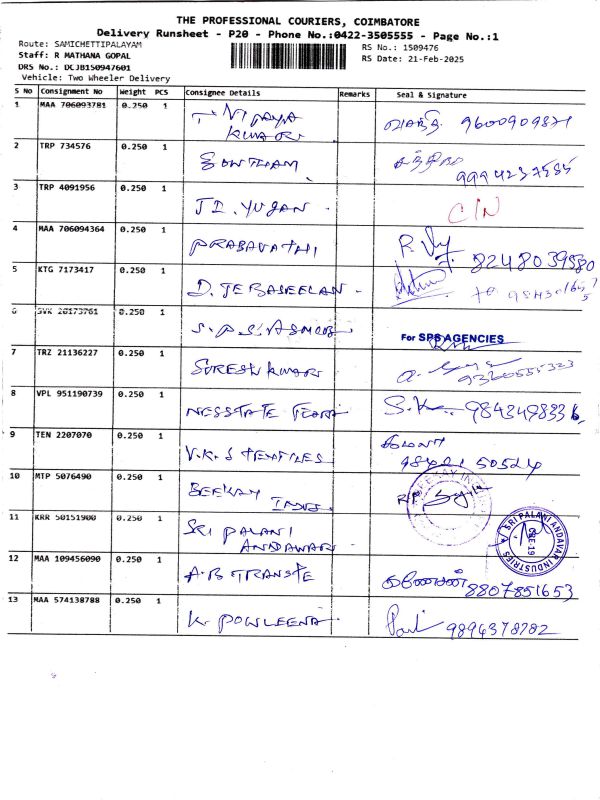 THE PROFESSIONAL COURIERS, COIMBATORE
Delivery Runsheet - P20 - Phone No.:0422-3505555 - Page No.:1
Route: SAMICHETTIPALAYAM
Staff: R MATHANA GOPAL
DRS No.: DCJB150947601
Vehicle: Two Wheeler Delivery
RS No.: 1509476
RS Date: 21-Feb-2025
S No Consignment No Weight PCS Consignee Details Remarks Seal & Signature
1 MAA 706093781 0.250 1 T. VIJAYA KUMARI 9600909871
2 TRP 734576 0.250 1 GOWTHAM 9994237585
3 TRP 4091956 0.250 1 YUGAN C/N
4 MAA 706094364 0.250 1 PRABAVATHI 8248039580
5 KTG 7173417 0.250 1 D. JEBASEELAN
6 SVK 20173761 0.250 1 S.P.S. For SPS AGENCIES
7 TRZ 21136227 0.250 1 SURESH KUMAR
8 VPL 951190739 0.250 1 S.K. 9843498336
9 TEN 2207070 0.250 1 V.K.S TEXTILES கமலா 50524
10 MTP 5076490 0.250 1 BEEKAY INDS.
11 KRR 50151900 0.250 1 SRI PALANI ANDAWAR
SRI PALANI ANDAVAR INDUSTRIES
12 MAA 109456090 0.250 1 A.B TRANSTE 8807851653
13 MAA 574138788 0.250 1 K. POWLEENA 9894378782